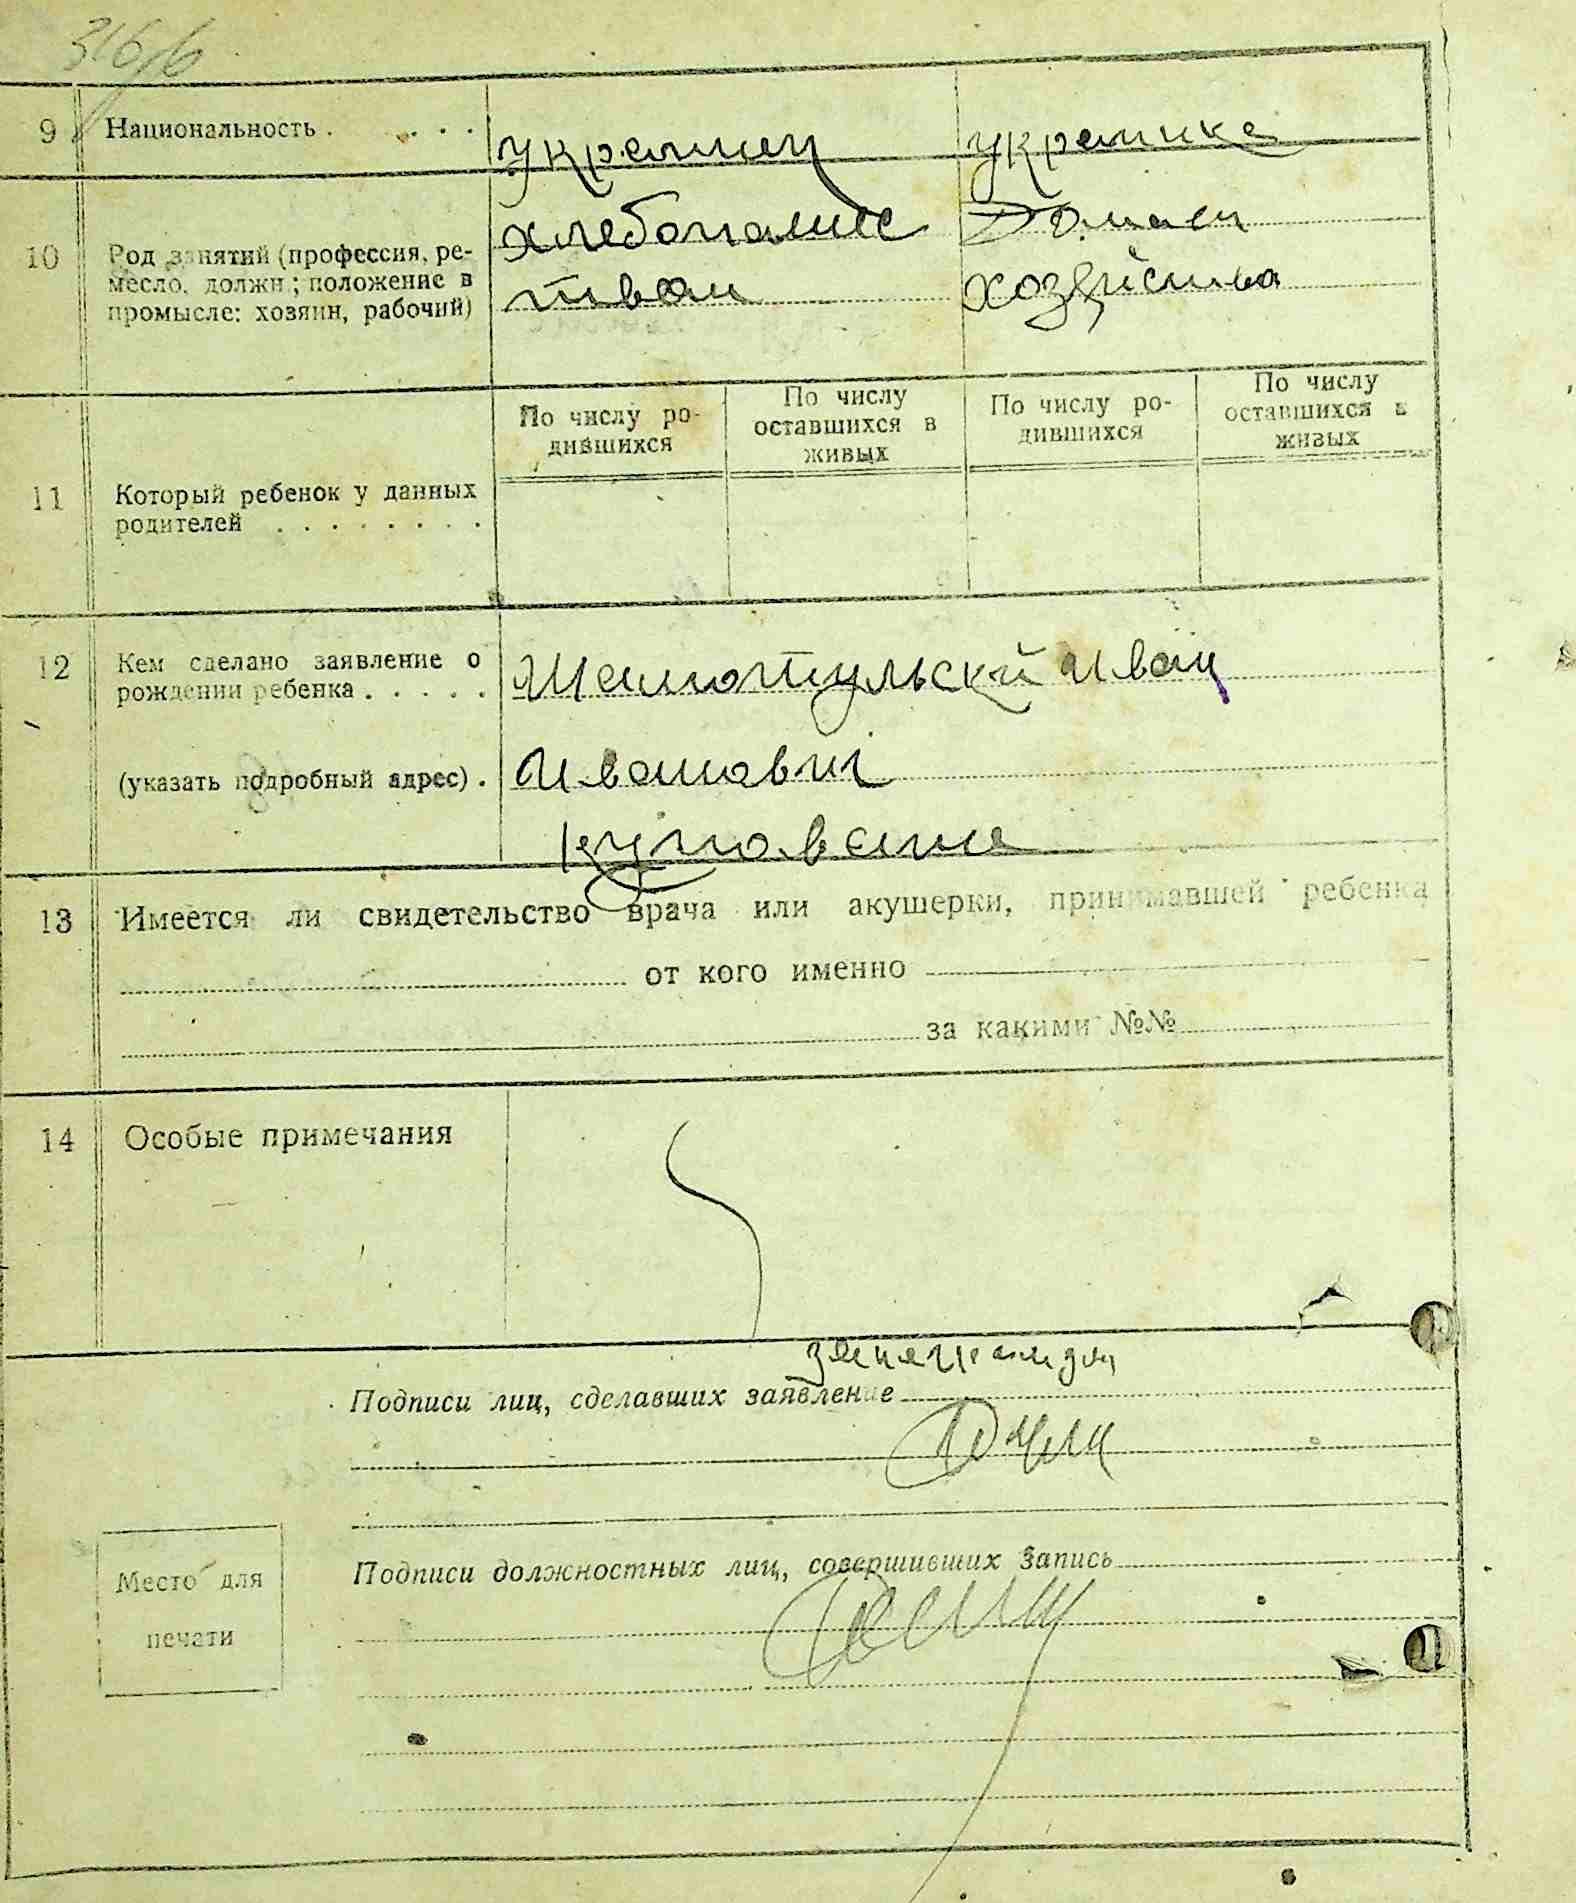 9 Национальность . . . . украинец украинка
10 Род занятий (профессия, ре-
месло, должн.; положение в
промысле: хозяин, рабочий)
хлебопашес
твом
Домаш
хозяйства
По числу ро-
дившихся
По числу
оставшихся в
живых
По числу ро-
дившихся
По числу
оставшихся в
живых
11 Который ребенок у данных
родителей . . . . . . . .
12 Кем сделано заявление о
рождении ребенка . . . . .
(указать подробный адрес) .
Иван
Иванович
13 Имеется ли свидетельство врача или акушерки, принимавшей ребенка
от кого именно
за какими №№
14 Особые примечания
Подписи лиц, сделавших заявление
Подписи должностных лиц, совершивших запись
Место для
печати